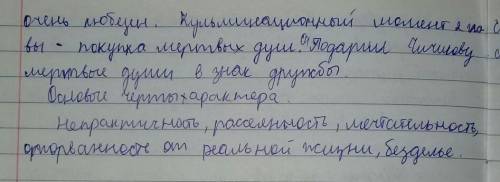 очень любезен. Кульминационный момент гла
вы - покупка мертвых душ. Подарил Чичикову
мертвые души в знак дружбы.
Основые черты характера.
Непрактичность, рассеянность, мечтательность,
оторванность от реальной жизни, безделье.